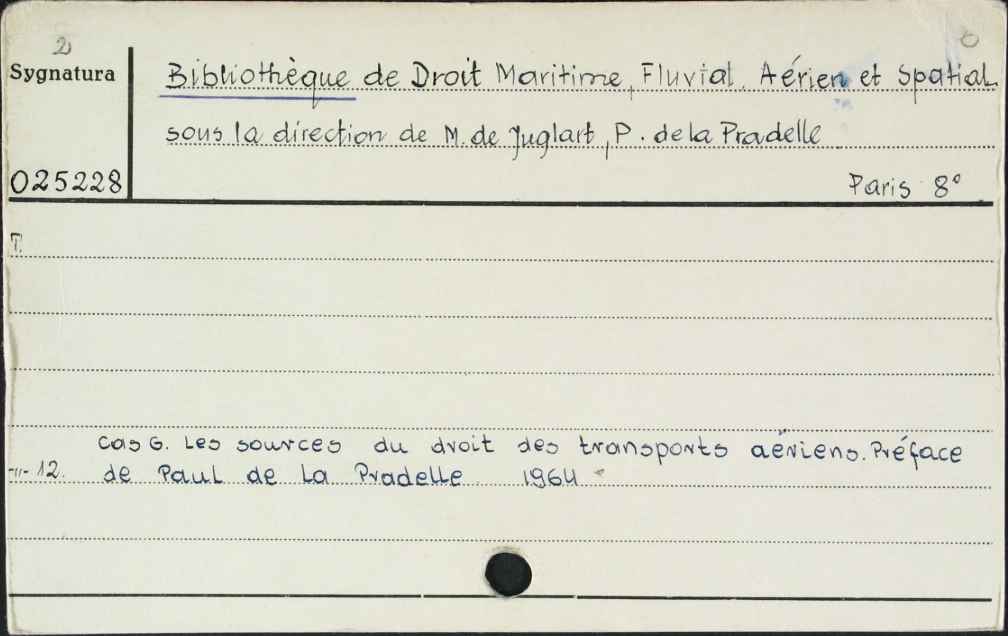 2
Sygnatura
Bibliothèque de Droit Maritime, Fluvial, Aérien et Spatial
sous la direction de M. de Juglart, P. de la Pradelle
025228
Paris 8°
T.
Cas G. Les sources du droit des transports aériens. Préface
-"- 12. de Paul de La Pradelle 1964